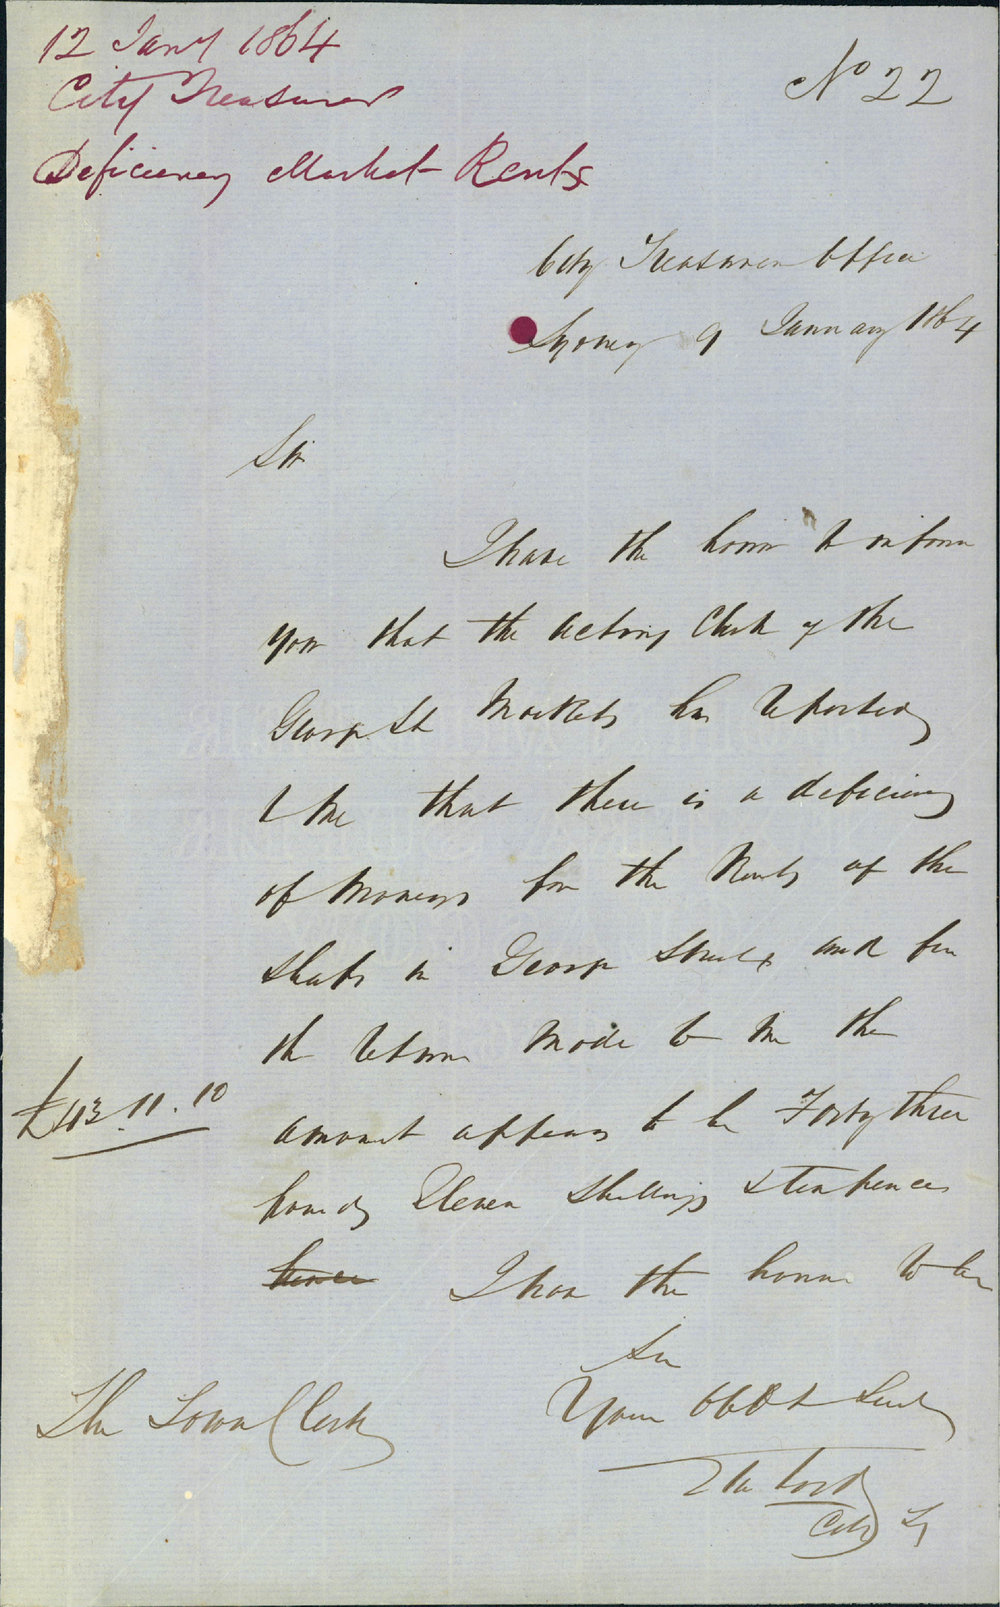 12 Jany 1864
City Treasurer
Deficiency Market Rents
No 22
City Treasurers Office
Sydney 9 January 1864
Sir
I have the honor to inform
you that the Acting Clerk of the
George St Markets has reported
to me that there is a deficiency
of Moneys for the Rents of the
in George Street and from
the return made to me the
£43.11.10
amount appears to be Forty three
pounds Eleven Shillings & tenpence
pence I have the honor to be
Sir
Your Obdt Servt
The Town Clerk
City Tr